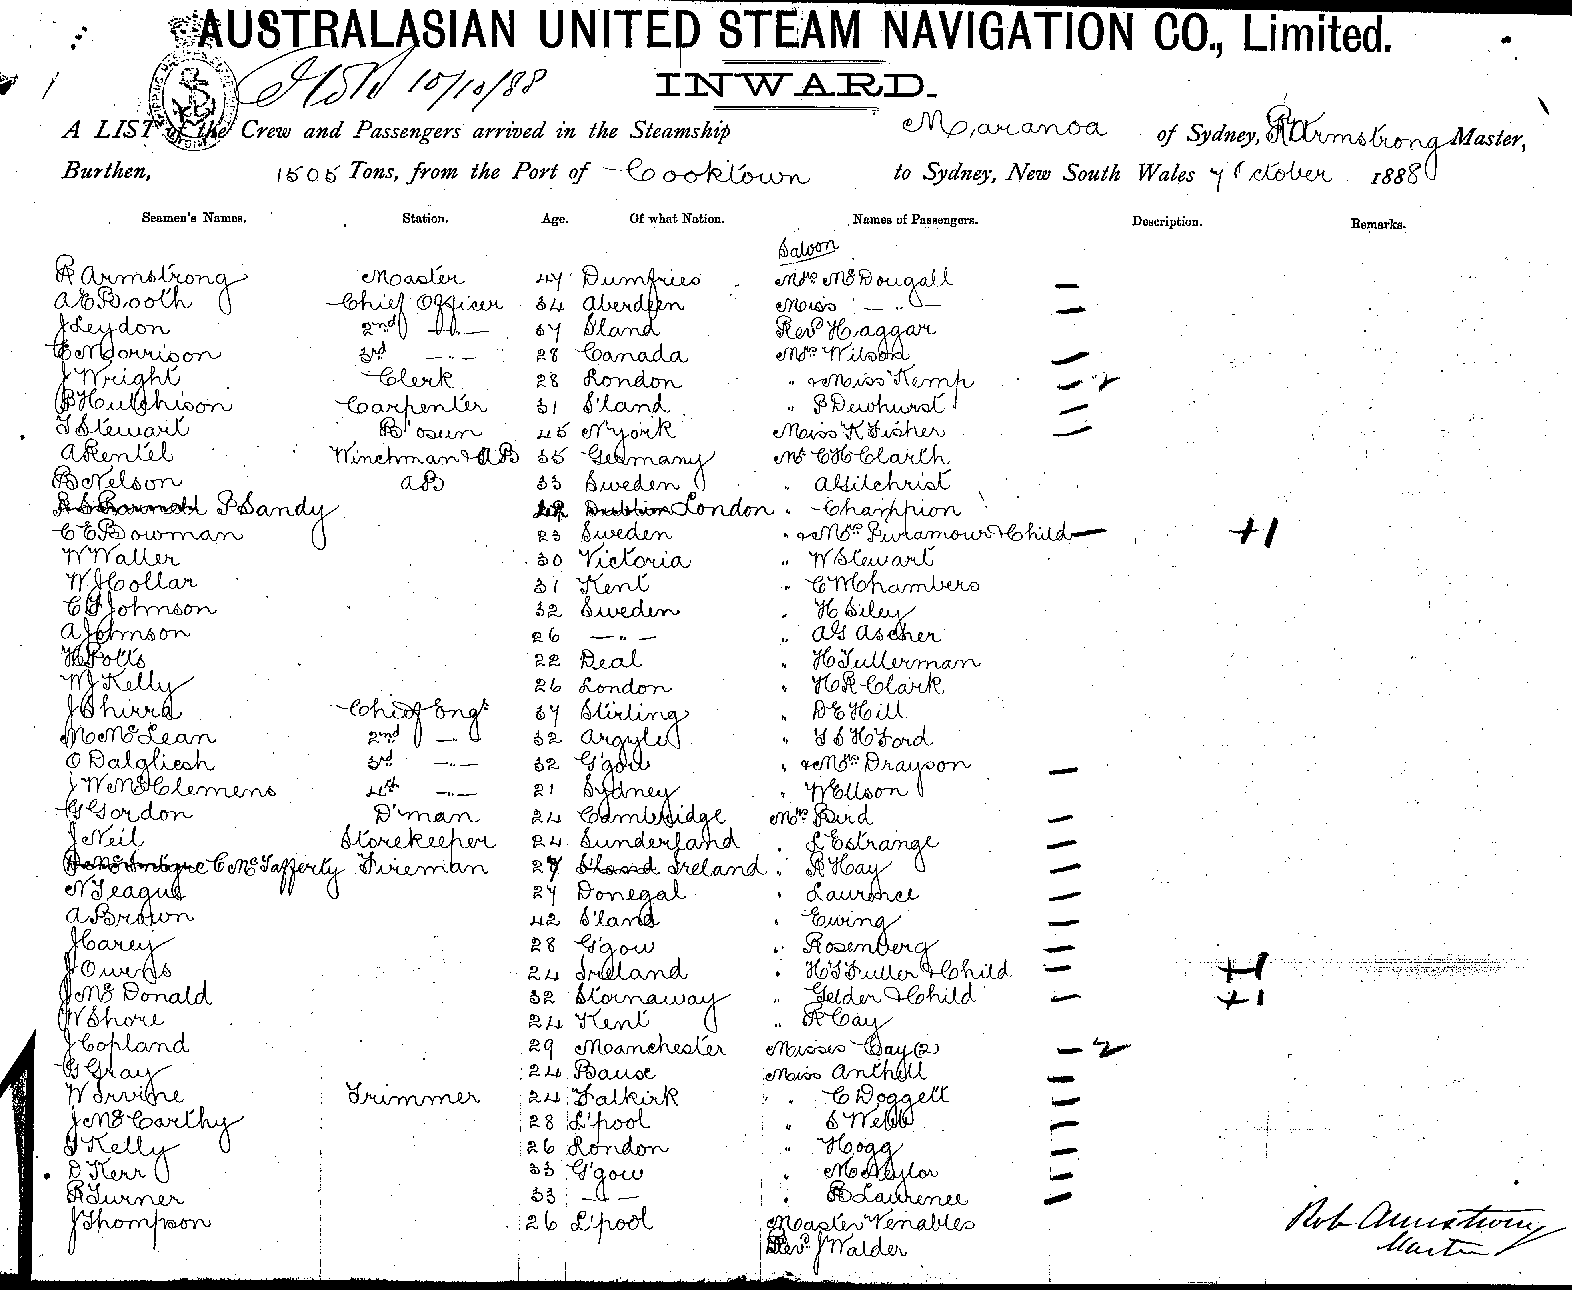 AUSTRALASIAN UNITED STEAM NAVIGATION CO., Limited.
10/10/88 INWARD.
A LIST of the Crew and Passengers arrived in the Steamship Maranoa of Sydney, R Armstrong Master,
Burthen, 1505 Tons, from the Port of Cooktown to Sydney, New South Wales 7 October 1888
Seamen's Names. Station. Age. Of what Nation. Names of Passengers. Description. Remarks.
Saloon
R Armstrong Master 47 Dumfries Mrs McDougall —
A E Booth Chief Officer 34 Aberdeen Miss — " — —
J Leydon 2nd — " — 37 S'land Revd Haggar
C Morrison 3rd — " — 28 Canada Mrs Wilson —
J Wright Clerk 28 London " & Miss Kemp — 2
P Hutchison Carpenter 31 S'land " P Dewhurst —
T Stewart B'osun 45 N'york Miss K Fisher —
A Rentel Winchman & AB 35 Germany Mr C H Clarth
B Nelson AB 33 Sweden " A Gilchrist
P Sandy 42 London " Champion
C E Bowman 23 Sweden " & Mrs Paramour & Child — +1
W Waller 30 Victoria " W Stewart
W J Collar 31 Kent " C M Chambers
C F Johnson 32 Sweden " H Siley
A Johnson 26 — " — " A G Ascher
H Potts 22 Deal " H Tullerman
W J Kelly 26 London " H R Clark
J Shirra Chief Engr 37 Stirling " D E Hill
M McLean 2nd — 32 Argyle " T S H Ford
O Dalgliesh 3rd — " — 32 G'gow " & Mrs Drayson —
J W McClemens 4th — " — 21 Sydney " W Ellson
G Gordon D'man 24 Cambridge Mrs Bird —
J Neil Storekeeper 24 Sunderland " L'Estrange —
C McTafferty Fireman 27 Ireland " R Hay —
N Teague 27 Donegal " Laurence —
A Brown 42 S'land " Ewing —
J Carey 28 G'gow " Rosenberg —
J Owens 24 Ireland " H T Fuller & Child — +1
J McDonald 32 Stornaway " Gelder & Child — +1
W Shore 24 Kent " R Cay
J Copland 29 Manchester Misses Cay (2) — 2
G Gray 24 Miss Anthill —
W Irvine Trimmer 24 Falkirk " C Doggett —
J McCarthy 28 L'pool " S Webb —
T Kelly 26 London " Hogg —
D Kerr 33 G'gow " M Naylor —
R Turner 33 — " — " B Laurence —
J Thompson 26 L'pool Master Venables
Revd J Walder
Rob Armstrong
Master